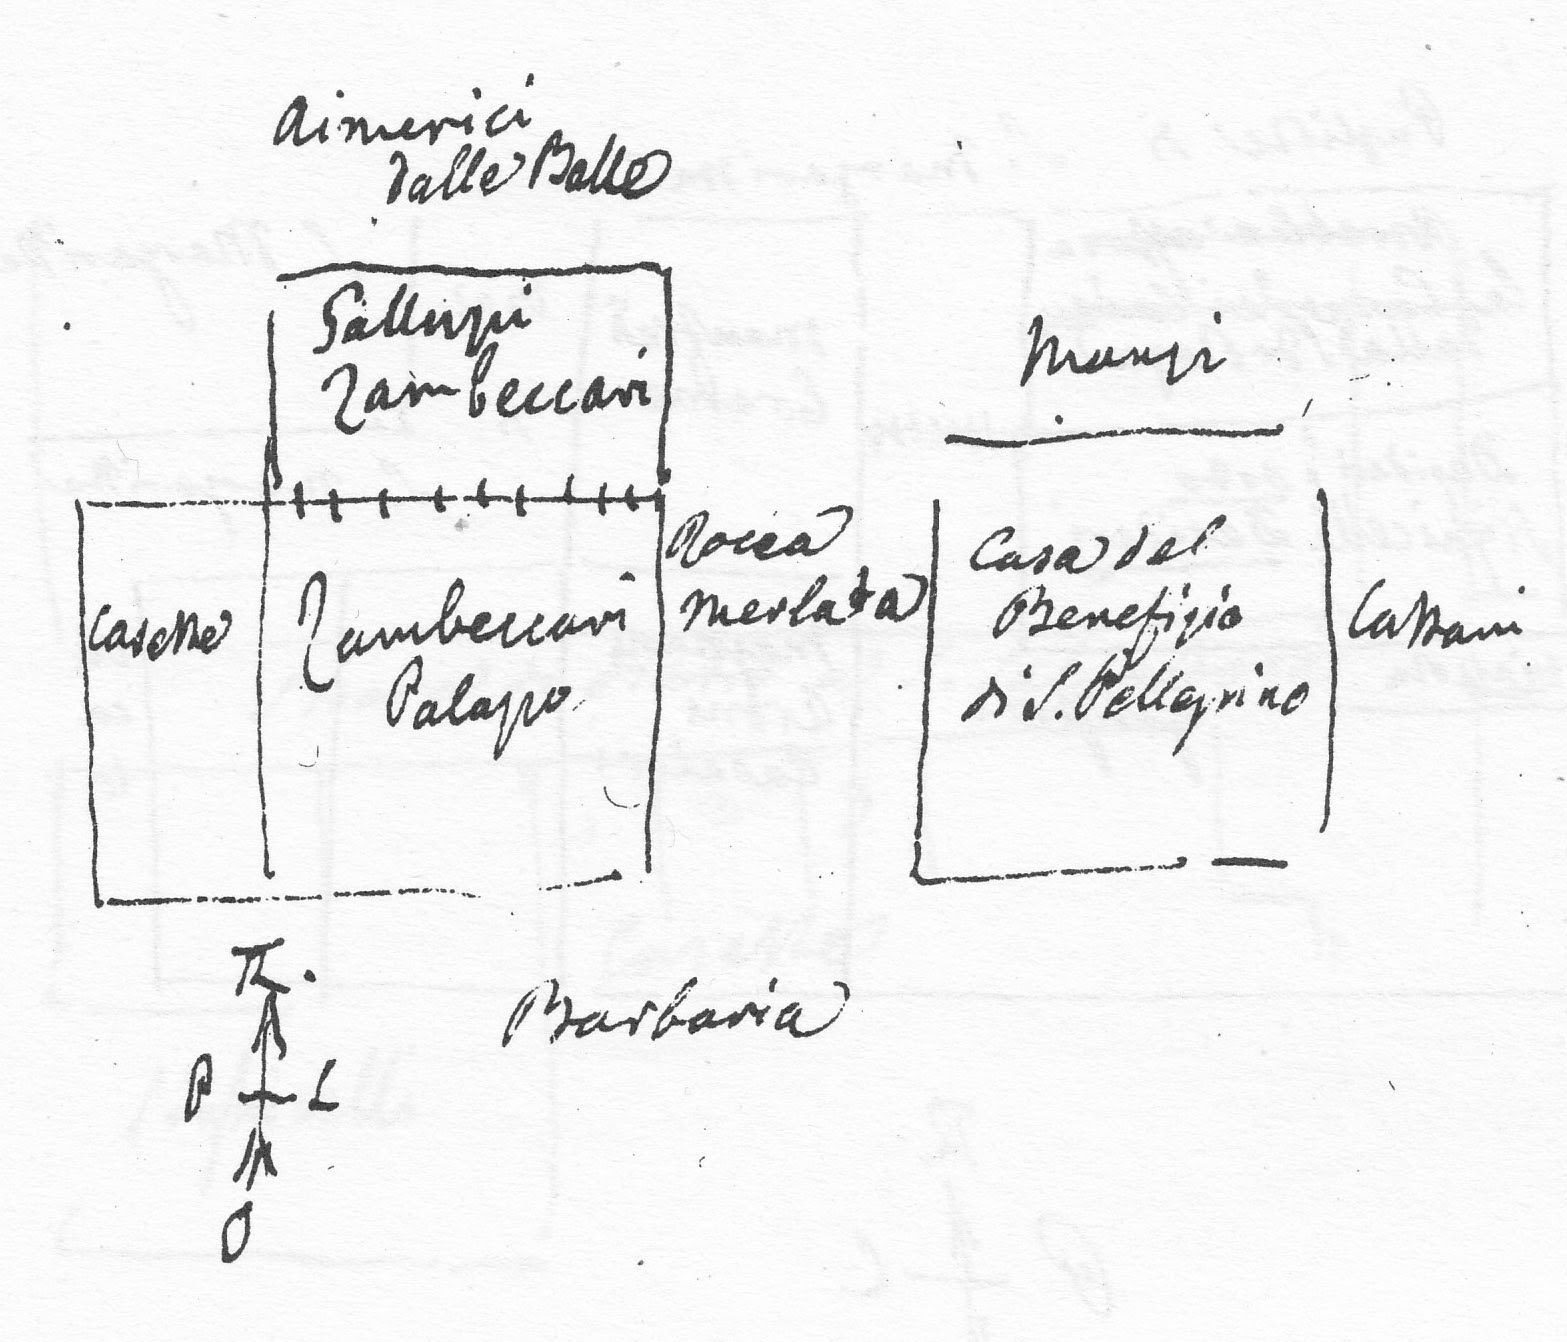 Aimerici
dalle Balle
Gallupi
Zambeccari
Monzi
Rocca
Merlata
Casa del
Benefizio
di S. Pellegrino
Casette
Zambeccari
Palazzo
Cattani
T.
P
L
O
Barbaria